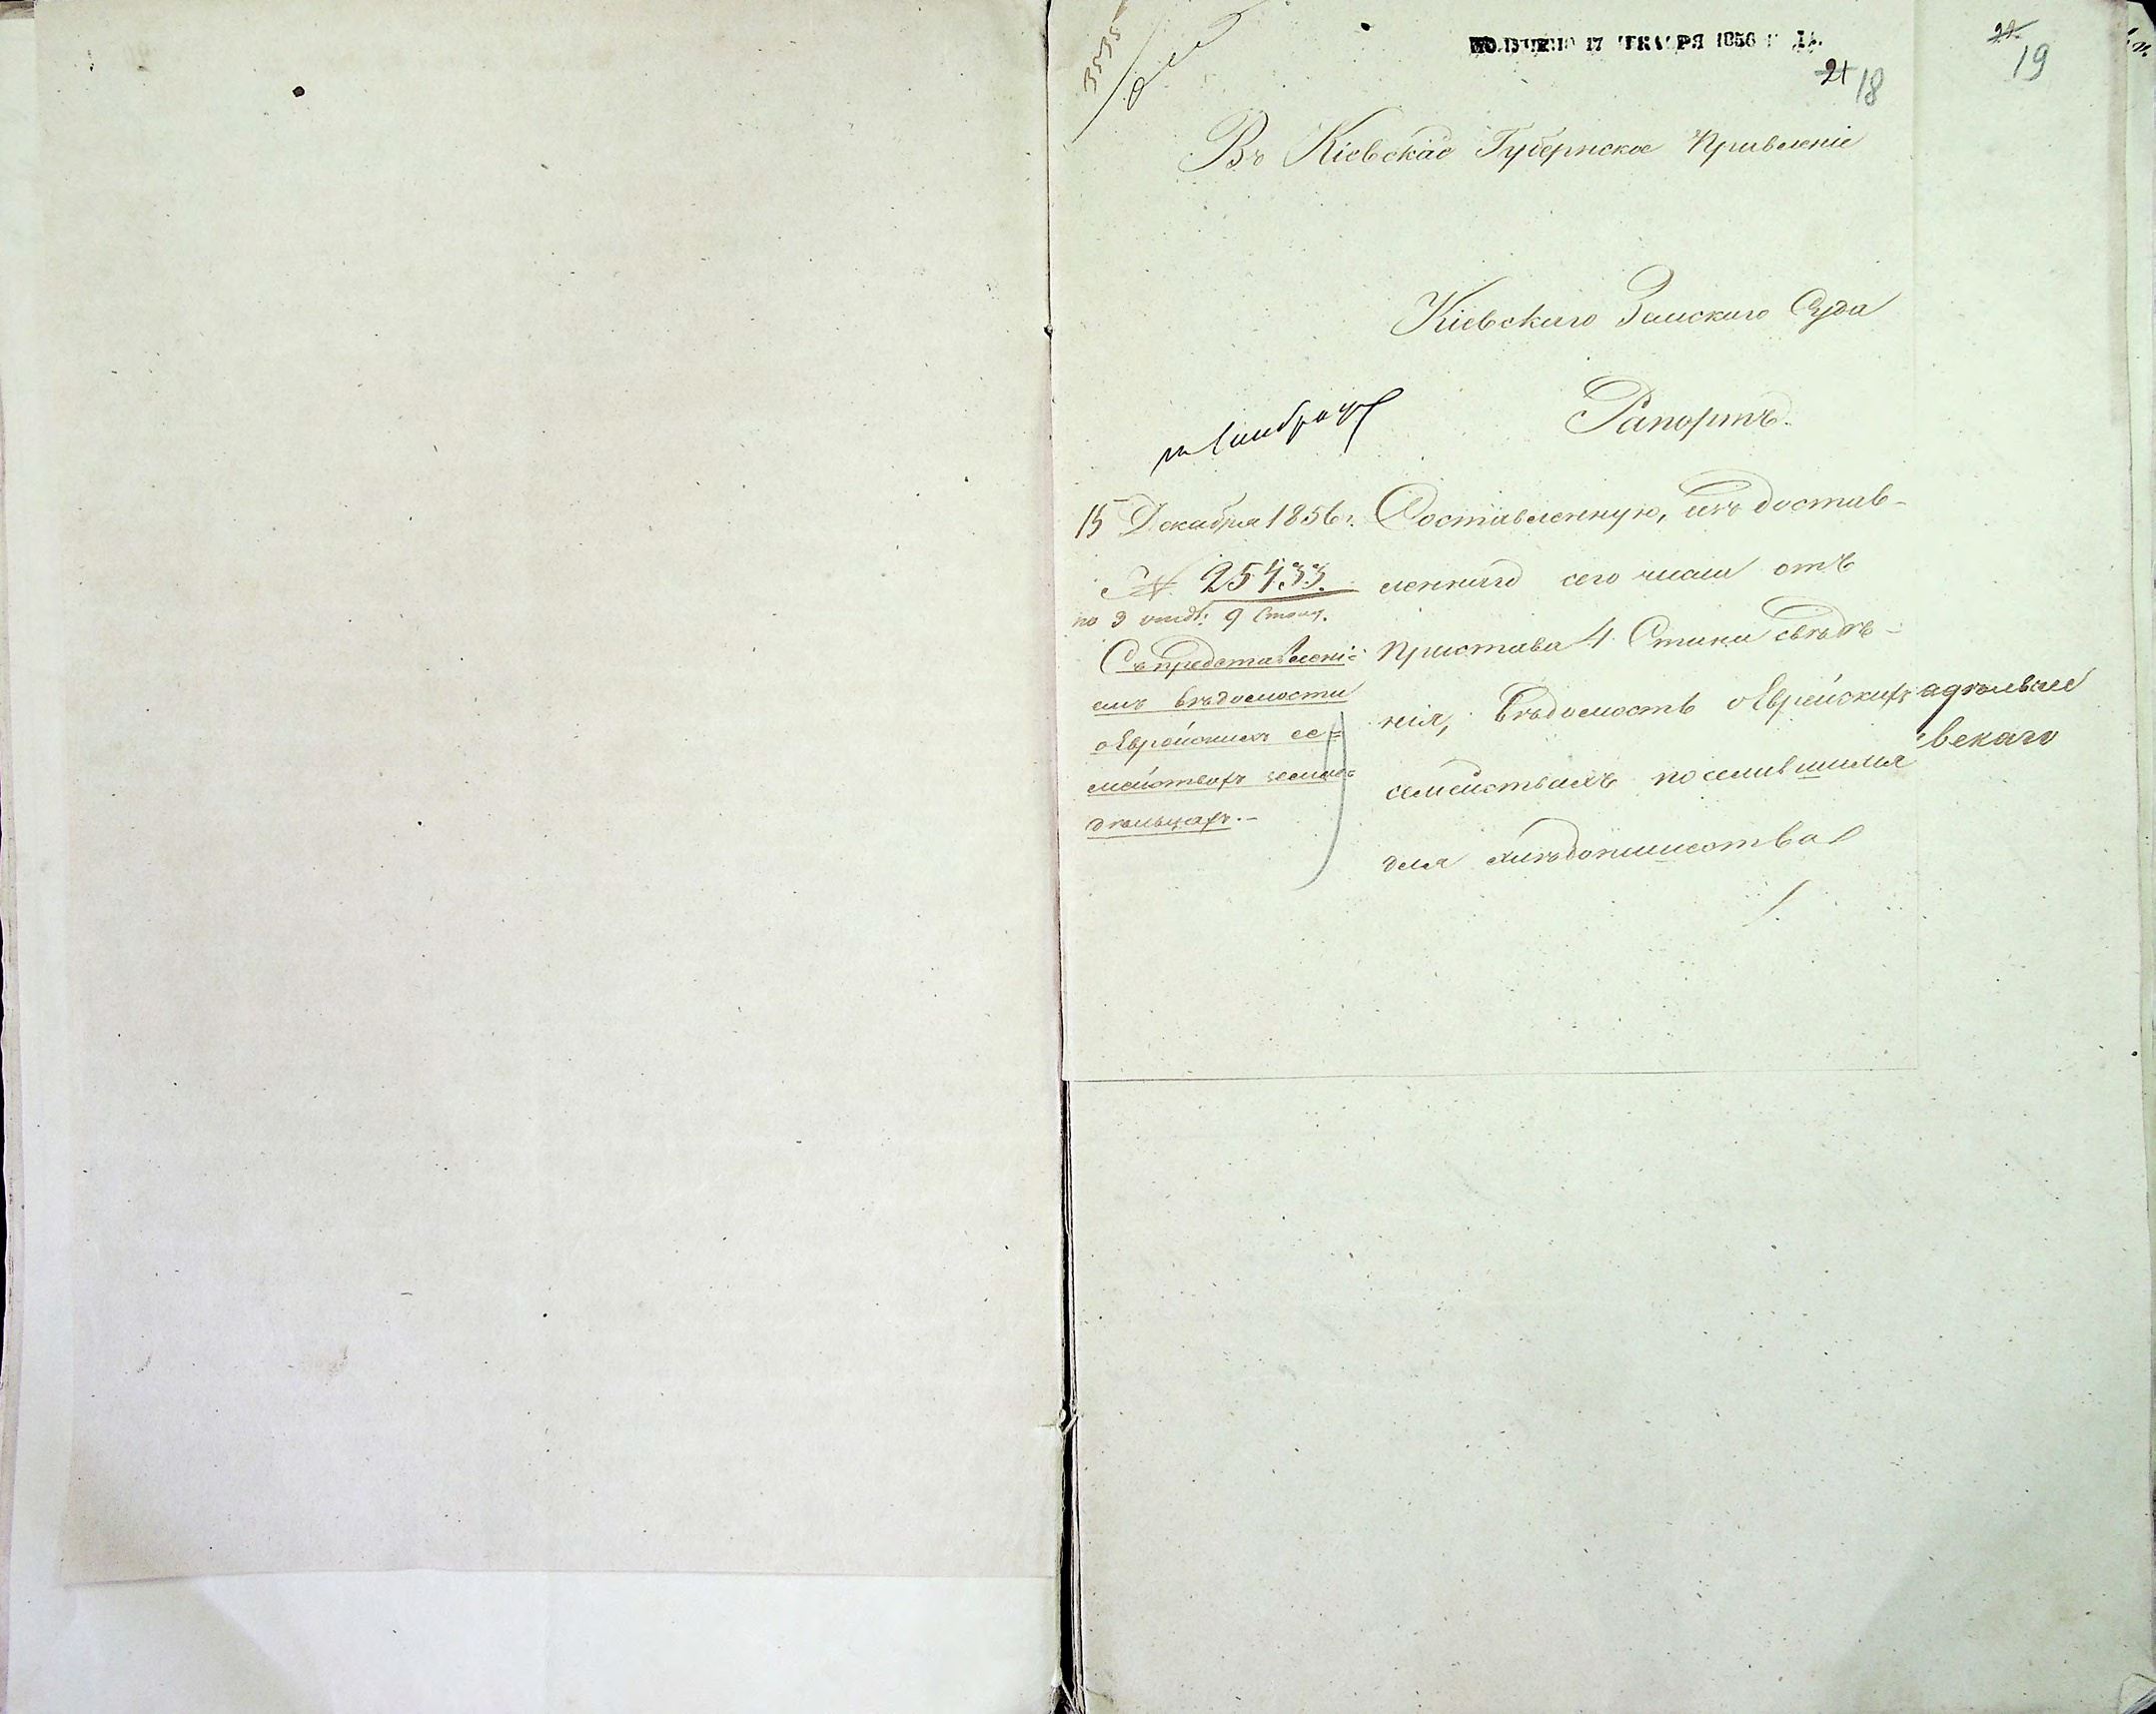 ПОЛУЧЕНО 17 ДЕКАБРЯ 1856 ГОДА.
21 18
22 19
3535
Въ Кіевское Губернское Правленіе
Кіевскаго Земскаго Суда
Рапортъ.
15 Декабря 1856 г.
№ 25433.
по 3 отдѣ: 9 Стол.
Съ представлені-
емъ вѣдомости
о Еврейскихъ се=
мействахъ земле=
дѣльцахъ.-
Составленную, изъ достав-
леннаго сего числа отъ
Пристава 4 Стана свѣдѣ-
нія, вѣдомость о Еврейскихъ
семействахъ поселившихся
для хлѣбопашества
вскаго